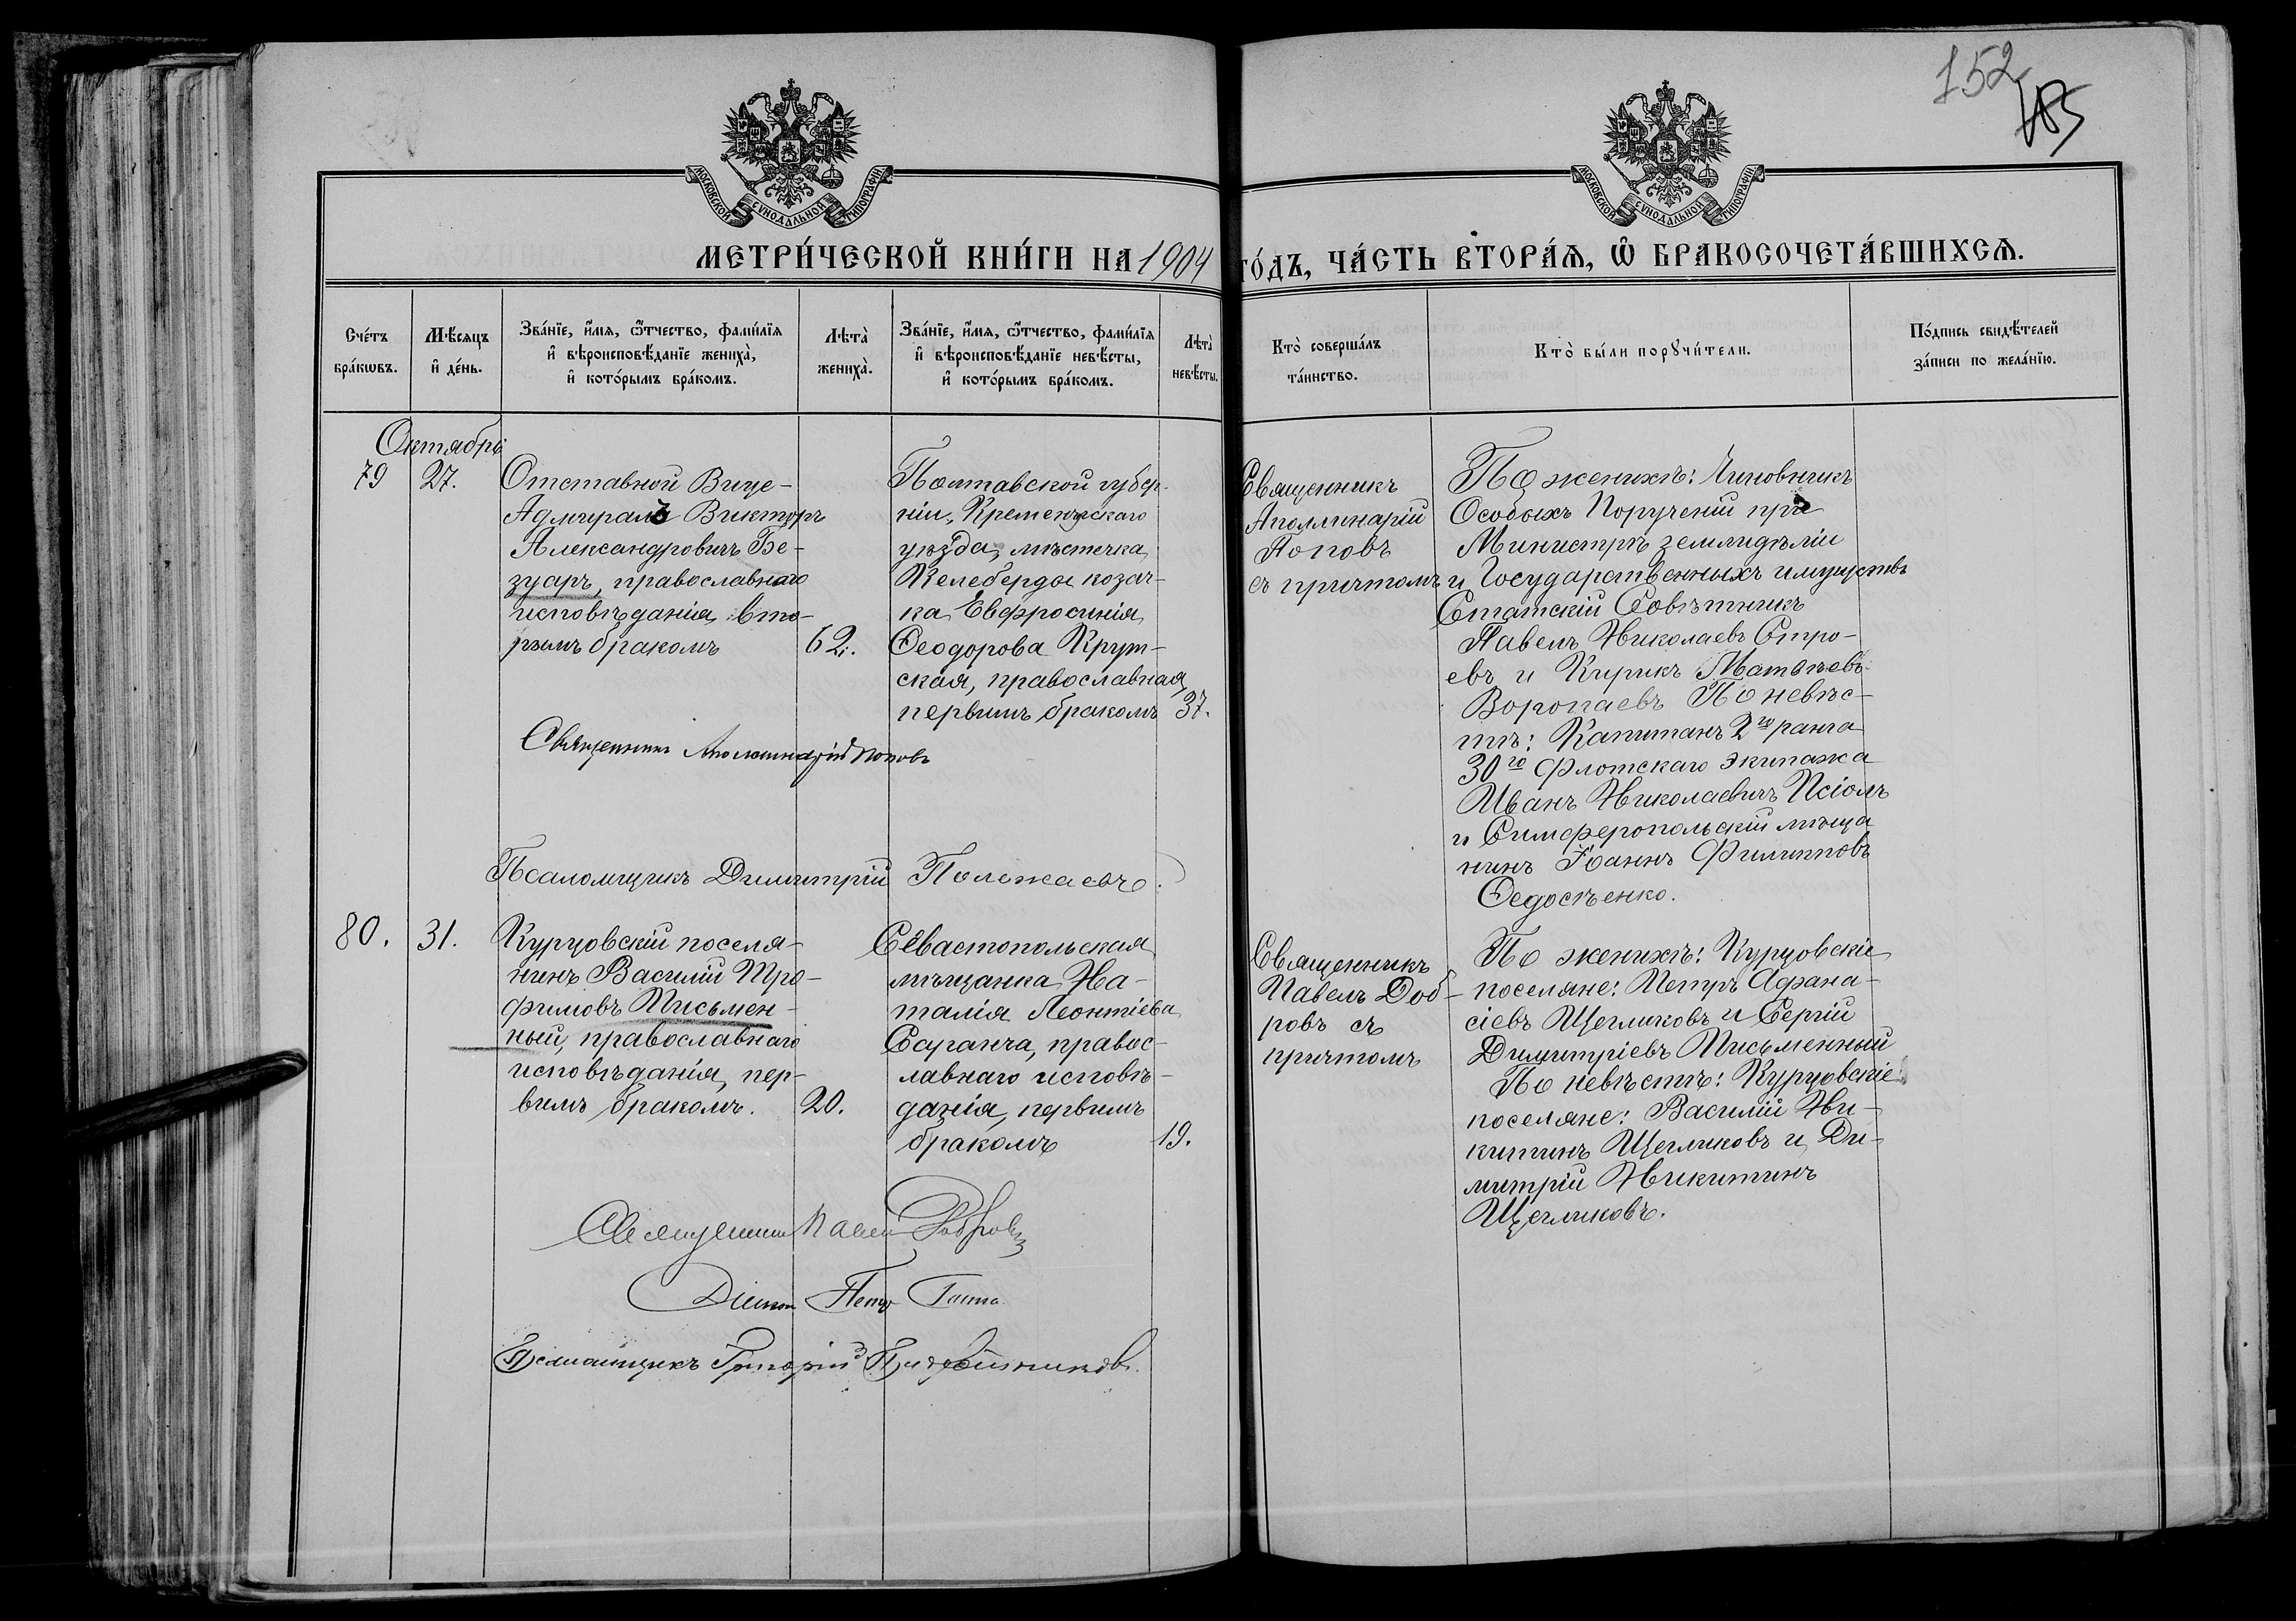 152
185
МОСКОВСКОЙ СѴНОДАЛЬНОЙ ТИПОГРАФІИ
МОСКОВСКОЙ СѴНОДАЛЬНОЙ ТИПОГРАФІИ
МЕТРИ́ЧЕСКОЙ КНИ́ГИ НА 1904 ГО́ДЪ, ЧА́СТЬ ВТОРА́Ѧ, Ѡ҆ БРАКОСОЧЕТА́ВШИХСѦ.
Сче́тъ
бра́кѡвъ.
Мѣ́сяцъ
и҆ де́нь.
Зва́нїе, и҆́мя, ѻ҆́тчество, фами́лїя
и҆ вѣроисповѣ́данїе жениха̀,
и҆ кото́рымъ бра́комъ.
Лѣта̀
жениха̀.
Зва́нїе, и҆́мя, ѻ҆́тчество, фами́лїя
и҆ вѣроисповѣ́данїе невѣ́сты,
и҆ кото́рымъ бра́комъ.
Лѣта̀
невѣ́сты.
Кто̀ соверша́лъ
та́инство.
Кто̀ бы́ли порꙋчи́тели.
По́дпись свидѣ́телей
за́писи по жела́нїю.
Октябрь
79
27.
Отставной Вице-
Адмиралъ Викторъ
Александровичъ Бе-
зуаръ, православнаго
исповѣданія, вто-
рымъ бракомъ
62.
Полтавской губер-
ніи, Кременчугскаго
уѣзда, мѣстечка
Келеберды козач-
ка Евфросинія
Ѳеодорова Крут-
ская, православная,
первымъ бракомъ
37.
Священникъ
Аполлинарій
Поповъ
съ причтомъ
По женихѣ: Чиновникъ
Особыхъ Порученій при
Министрѣ земледѣлія
и Государственныхъ имуществъ
Статскій Совѣтникъ
Павелъ Николаевъ Стро-
евъ и Кирикъ Матѳѣевъ
Воропаевъ По невѣс-
тѣ: Капитанъ 2го ранга
30го Флотскаго экипажа
Иванъ Николаевичъ Псіолъ
и Симферопольскій мѣща
нинъ Іоаннъ Филипповъ
Ѳедосѣенко.
Священникъ Аполлинарій Поповъ
Псаломщикъ Димитрій Полежаевъ.
80.
31.
Курцовскій поселя-
нинъ Василій Тро-
фимовъ Письмен-
ный, православнаго
исповѣданія, пер-
вымъ бракомъ.
20.
Севастопольская
мѣщанка На-
талія Леонтіева
Сарганча, правос-
лавнаго исповѣ-
данія, первымъ
бракомъ
19.
Священникъ
Павелъ Доб-
ровъ съ
причтомъ
По женихѣ: Курцовскіе
поселяне: Петръ Афана-
сіевъ Щегликовъ и Сергій
Димитріевъ Письменный
По невѣстѣ: Курцовскіе
поселяне: Василій Ни-
китинъ Щегликовъ и Ди-
митрій Никитинъ
Щегликовъ.
Священникъ Павелъ Добровъ
Діаконъ Петръ
Псаломщикъ Григорій